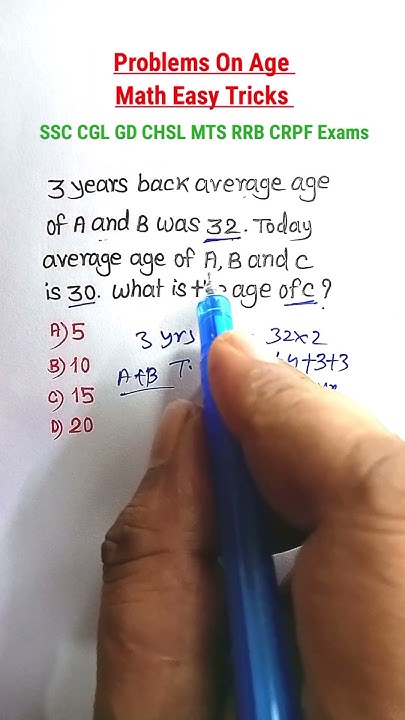 Problems On Age
Math Easy Tricks
SSC CGL GD CHSL MTS RRB CRPF Exams
3 years back average age
of A and B was 32. Today
average age of A, B and C
is 30. What is age of C ?
A) 5
B) 10
C) 15
D) 20
3 yrs 32×2
A+B T. +3+3